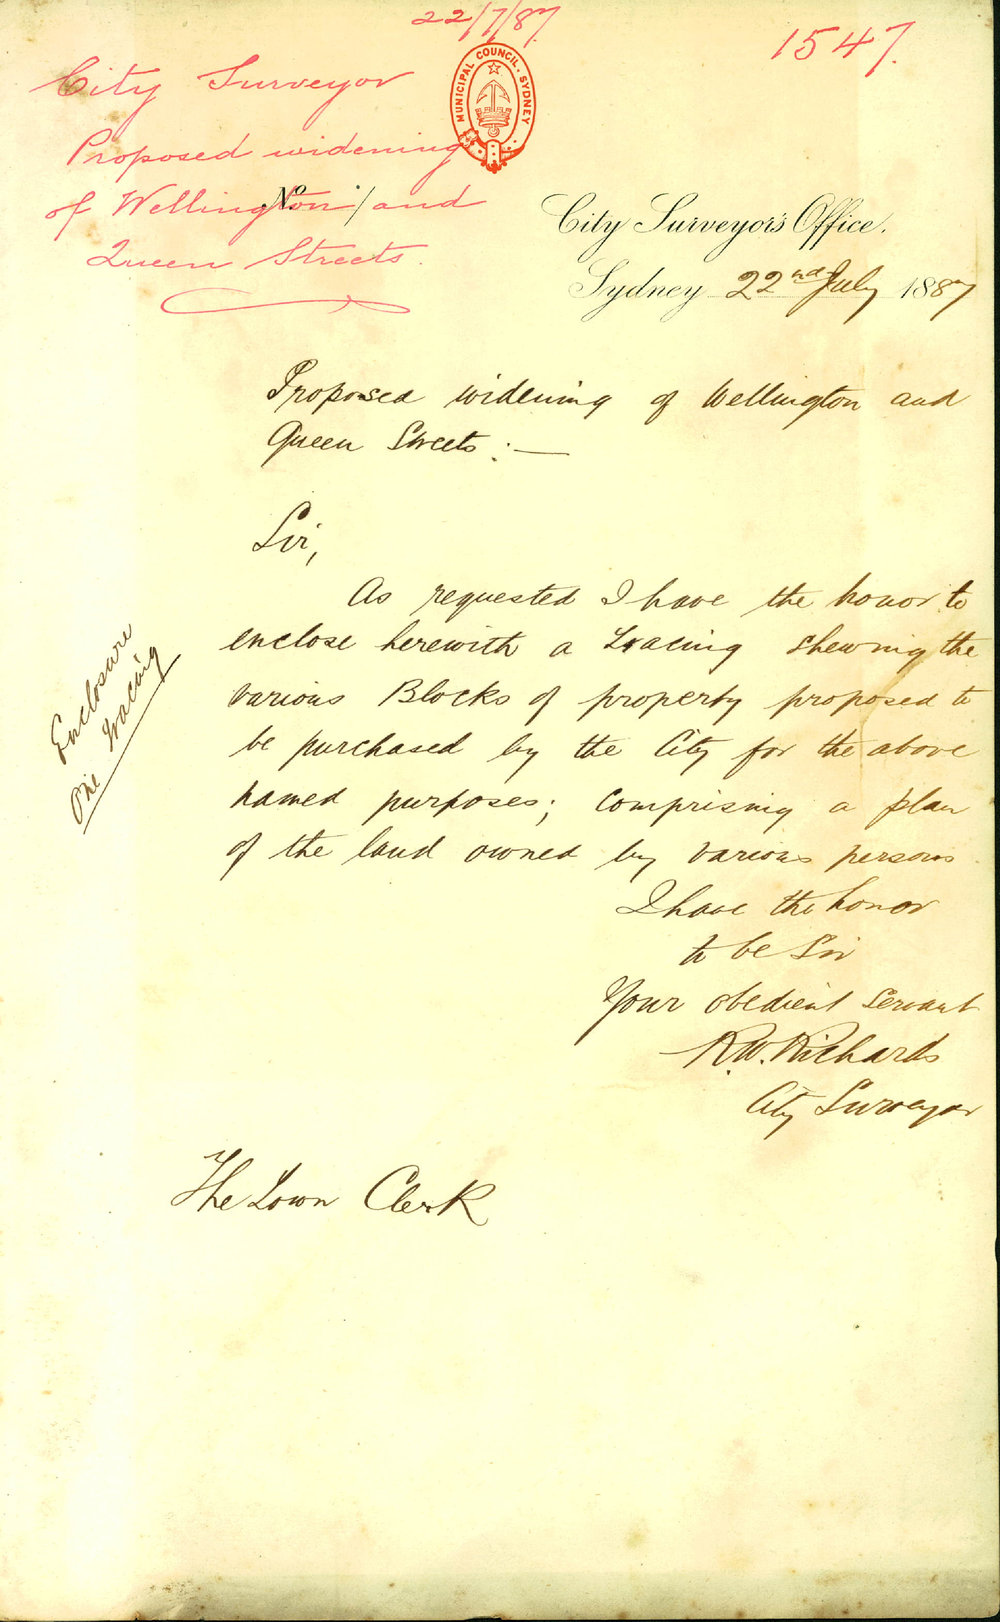 22/7/87.
1547.
City Surveyor
Proposed widening
of Wellington and
Queen Streets.
MUNICIPAL COUNCIL. SYDNEY
No. /
City Surveyor's Office.
Sydney 22nd July 1887
Proposed widening of Wellington and
Queen Streets :—
Sir,
As requested I have the honor to
enclose herewith a tracing shewing the
various Blocks of property proposed to
be purchased by the City for the above
named purposes; comprising a plan
of the land owned by various persons
I have the honor
to be Sir
Your obedient servant
R.W. Richards
City Surveyor
Enclosure
One tracing
The Town Clerk